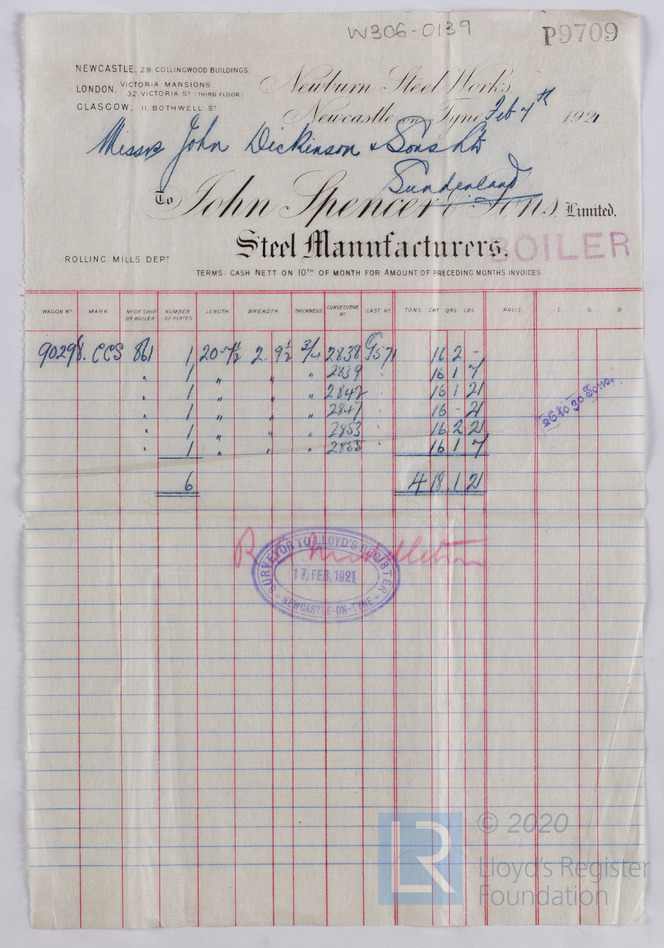 W306-0139
P9709
NEWCASTLE, 29, COLLINGWOOD BUILDINGS.
LONDON, VICTORIA MANSIONS 32, VICTORIA ST (THIRD FLOOR)
GLASGOW, 11, BOTHWELL ST
Newburn Steel Works,
Newcastle on Tyne, Feb 7th 1921
Messrs John Dickinson & Sons Ld
Sunderland
To John Spencer & Sons, Limited.
Steel Manufacturers.
BOILER
ROLLING MILLS DEPT
TERMS: CASH NETT ON 10TH OF MONTH FOR AMOUNT OF PRECEDING MONTHS INVOICES
WAGON No MARK No OF SHIP OR BOILER NUMBER OF PLATES LENGTH BREADTH THICKNESS CONSECUTIVE No CAST No TONS CWT QRS LBS PRICE £ S D
90298. CCS 861 1 20-7½ 2 9½ 3/4 2838 16 2 -
" 1 " " " 2839 " 16 1 7
" 1 " " " 2842 " 16 1 21
" 1 " " " 2847 " 16 - 21
" 1 " " " 2853 " 16 2 21
" 1 " " " 16 1 7
6 4 18 1 21
26 to 30 Tons.
R. Middleton
SURVEYOR TO LLOYD'S REGISTER
17 FEB. 1921
NEWCASTLE-ON-TYNE
LR © 2020
Lloyd's Register
Foundation